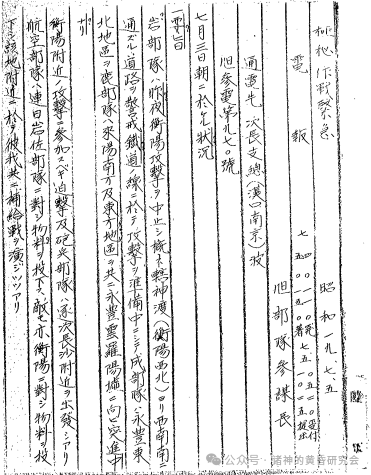 極秘 作戦緊急
電報
昭和一九、七、五
七、四、〇一一〇発
七、五、〇一〇〇著
七五、一〇
旭部隊参謀長
通電先 次長支総(漢口南京)波
旭参電第九七〇號
七月三日朝ニ於ケル状況
一要旨
岩部隊ハ昨夜衡陽攻撃ヲ中止シ概ネ 神渡(衡陽西北)ヨリ西南南
通ズル道路ヲ 鐵道ノ線ニ於テ攻撃ヲ準備中ニシテ成部隊ハ永豊東
北地區ヲ 部隊ハ耒陽南方及東方地區ヲ共ニ永豊 羅陽墟ニ向ヒ突進中
ナリ
衡陽附近ノ攻撃ニ参加スベキ迫撃及砲兵部隊ハ逐次長沙附近ヲ出發シアリ
航空部隊ハ連日岩佐部隊ニ對シ物料ヲ投下シ敵モ亦衡陽ニ對シ物料ヲ投
下シ該地附近ニ於テ彼我共ニ補給戦ヲ演ジツツアリ
公众号·诸神的黄昏研究会